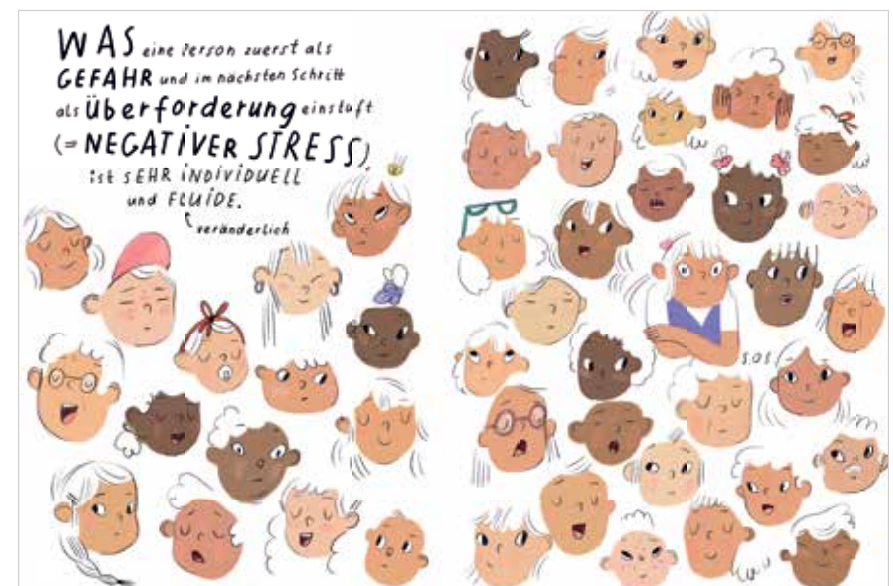 WAS eine Person zuerst als
GEFAHR und im nächsten Schritt
als Überforderung einstuft
(= NEGATIVER STRESS),
ist SEHR INDIVIDUELL
und FLUIDE.
veränderlich
S.O.S.